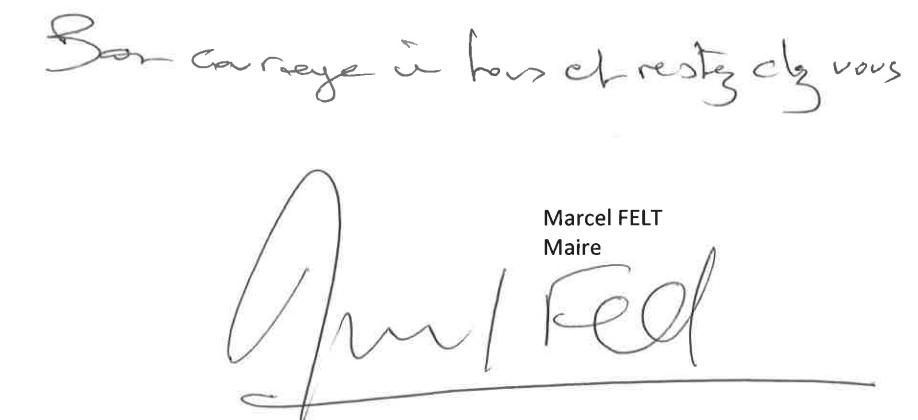 Bon courage à tous et restez chez vous
Marcel FELT
Maire